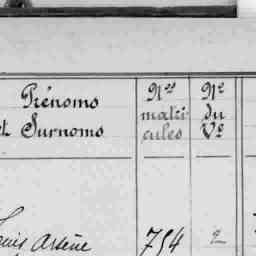 Prénoms
et Surnoms
Nos
matri
cules
No
du
Vo
Louis Arsène
754
2